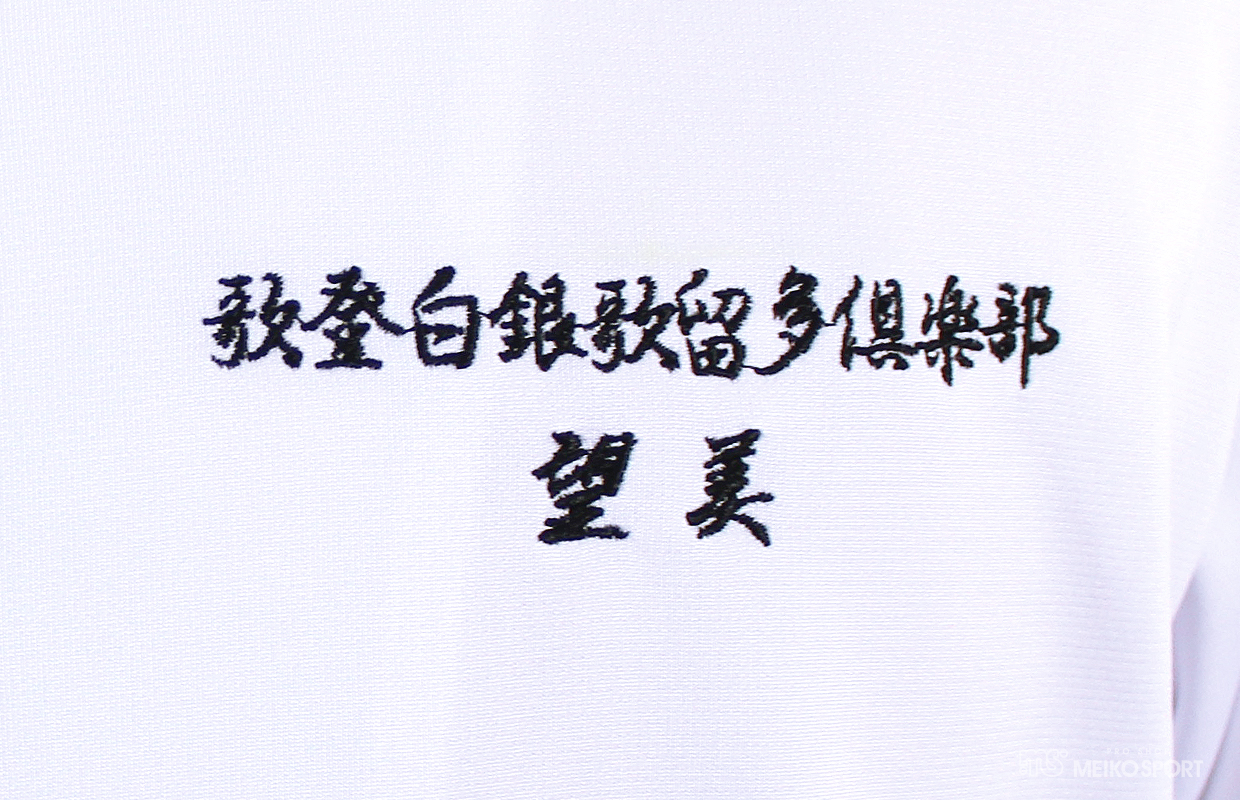 歌登白銀歌留多倶楽部
望美
MEIKO SPORT